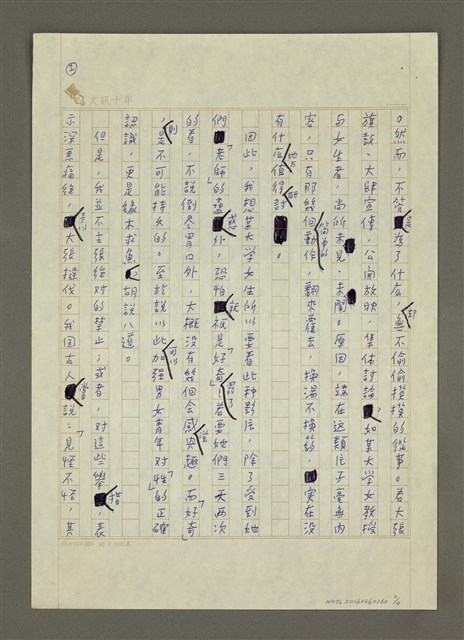 ②
文訊十年
。然而，不管是為了什么，無不偷偷摸摸的從事。若大張
旗鼓、大肆宣傳，公開放映，集体討論，如某大学女教授
与女生者，尚所未見、未聞。原因，端在這類片子毫無內
容，只有那幾個簡單的動作，翻來覆去，換湯不換药，實在沒
有什么地方值得討研。
因此，我想某大学女生所以要看此种影片，除了受到她
們「老師」的蠱惑外，恐怕就祇是好奇罷了！若要她們三天兩次
的看，不說倒尽胃口外，大概沒有幾個会感興趣。而「好奇」
，則是不可能持久的。至於說以此可以加强男女青年对「性」的正確
認識，更是緣木求魚，胡說八道。
但是，我並不主張絕对的禁止；或者，对這些舉措，表
示深惡痛絕，予以大張撻伐。我国古人嘗說：「見怪不怪，其
NMTL20160060160 2/4